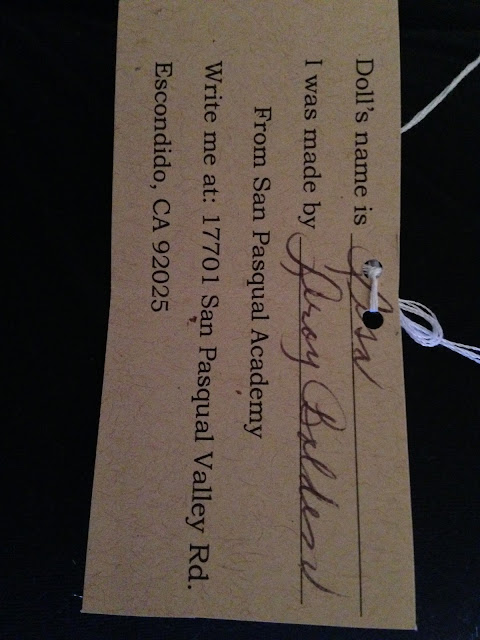 Doll's name is
I was made by Leroy
From San Pasqual Academy
Write me at: 17701 San Pasqual Valley Rd.
Escondido, CA 92025